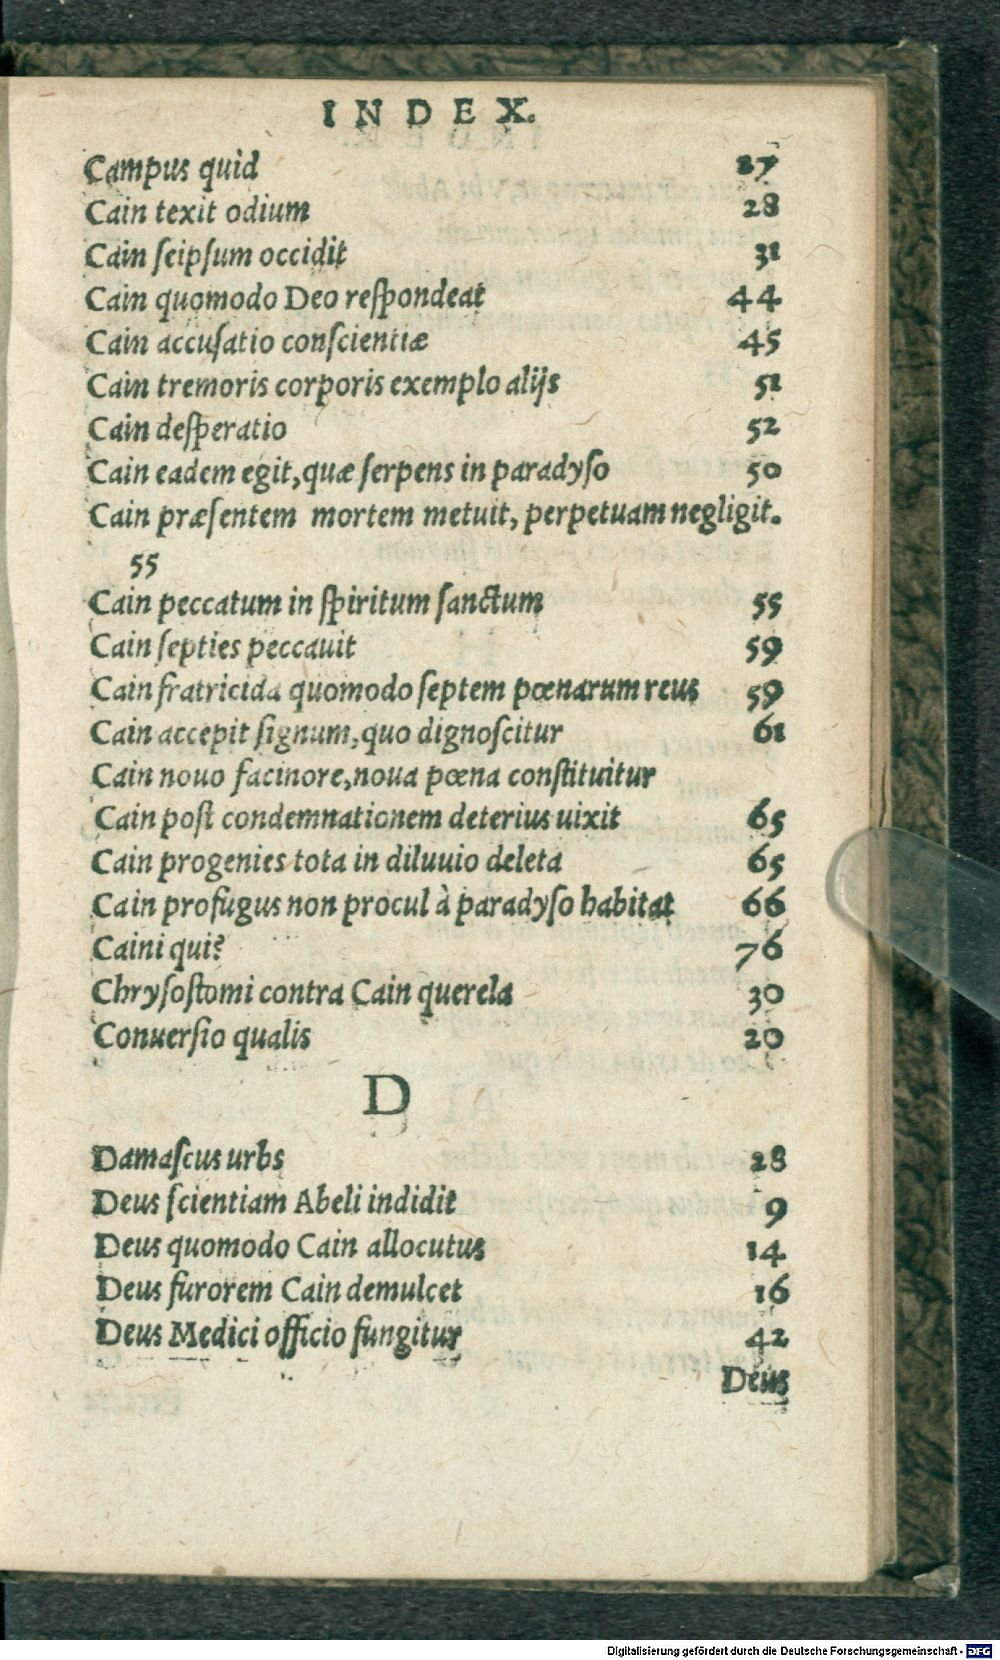 INDEX.
Campus quid 27
Cain texit odium 28
Cain seipsum occidit 31
Cain quomodo Deo respondeat 44
Cain accusatio conscientiæ 45
Cain tremoris corporis exemplo alijs 51
Cain desperatio 52
Cain eadem egit, quæ serpens in paradyso 50
Cain præsentem mortem metuit, perpetuam negligit.
55
Cain peccatum in spiritum sanctum 55
Cain septies peccauit 59
Cain fratricida quomodo septem pœnarum reus 59
Cain accepit signum, quo dignoscitur 61
Cain nouo facinore, noua pœna constituitur
Cain post condemnationem deterius uixit 65
Cain progenies tota in diluuio deleta 65
Cain profugus non procul à paradyso habitat 66
Caini qui? 76
Chrysostomi contra Cain querela 30
Conuersio qualis 20
D
Damascus urbs 28
Deus scientiam Abeli indidit 9
Deus quomodo Cain allocutus 14
Deus furorem Cain demulcet 16
Deus Medici officio fungitur 42
Deus
Digitalisierung gefördert durch die Deutsche Forschungsgemeinschaft - DFG